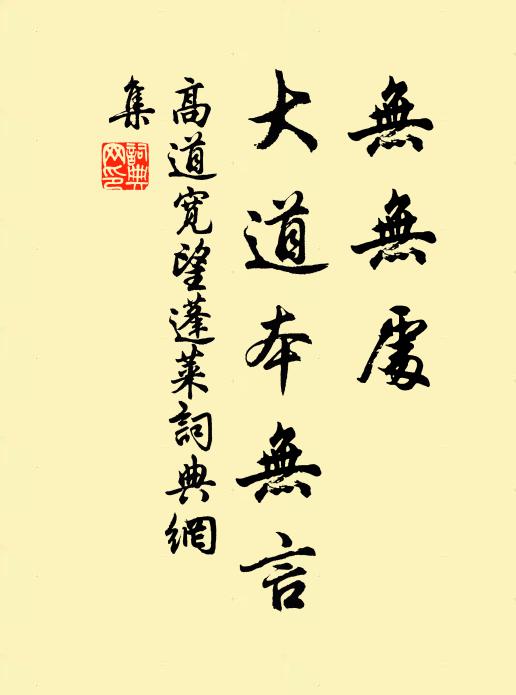 無無處
大道本無言
高道寬望蓬萊詞典網
集
詞典網印